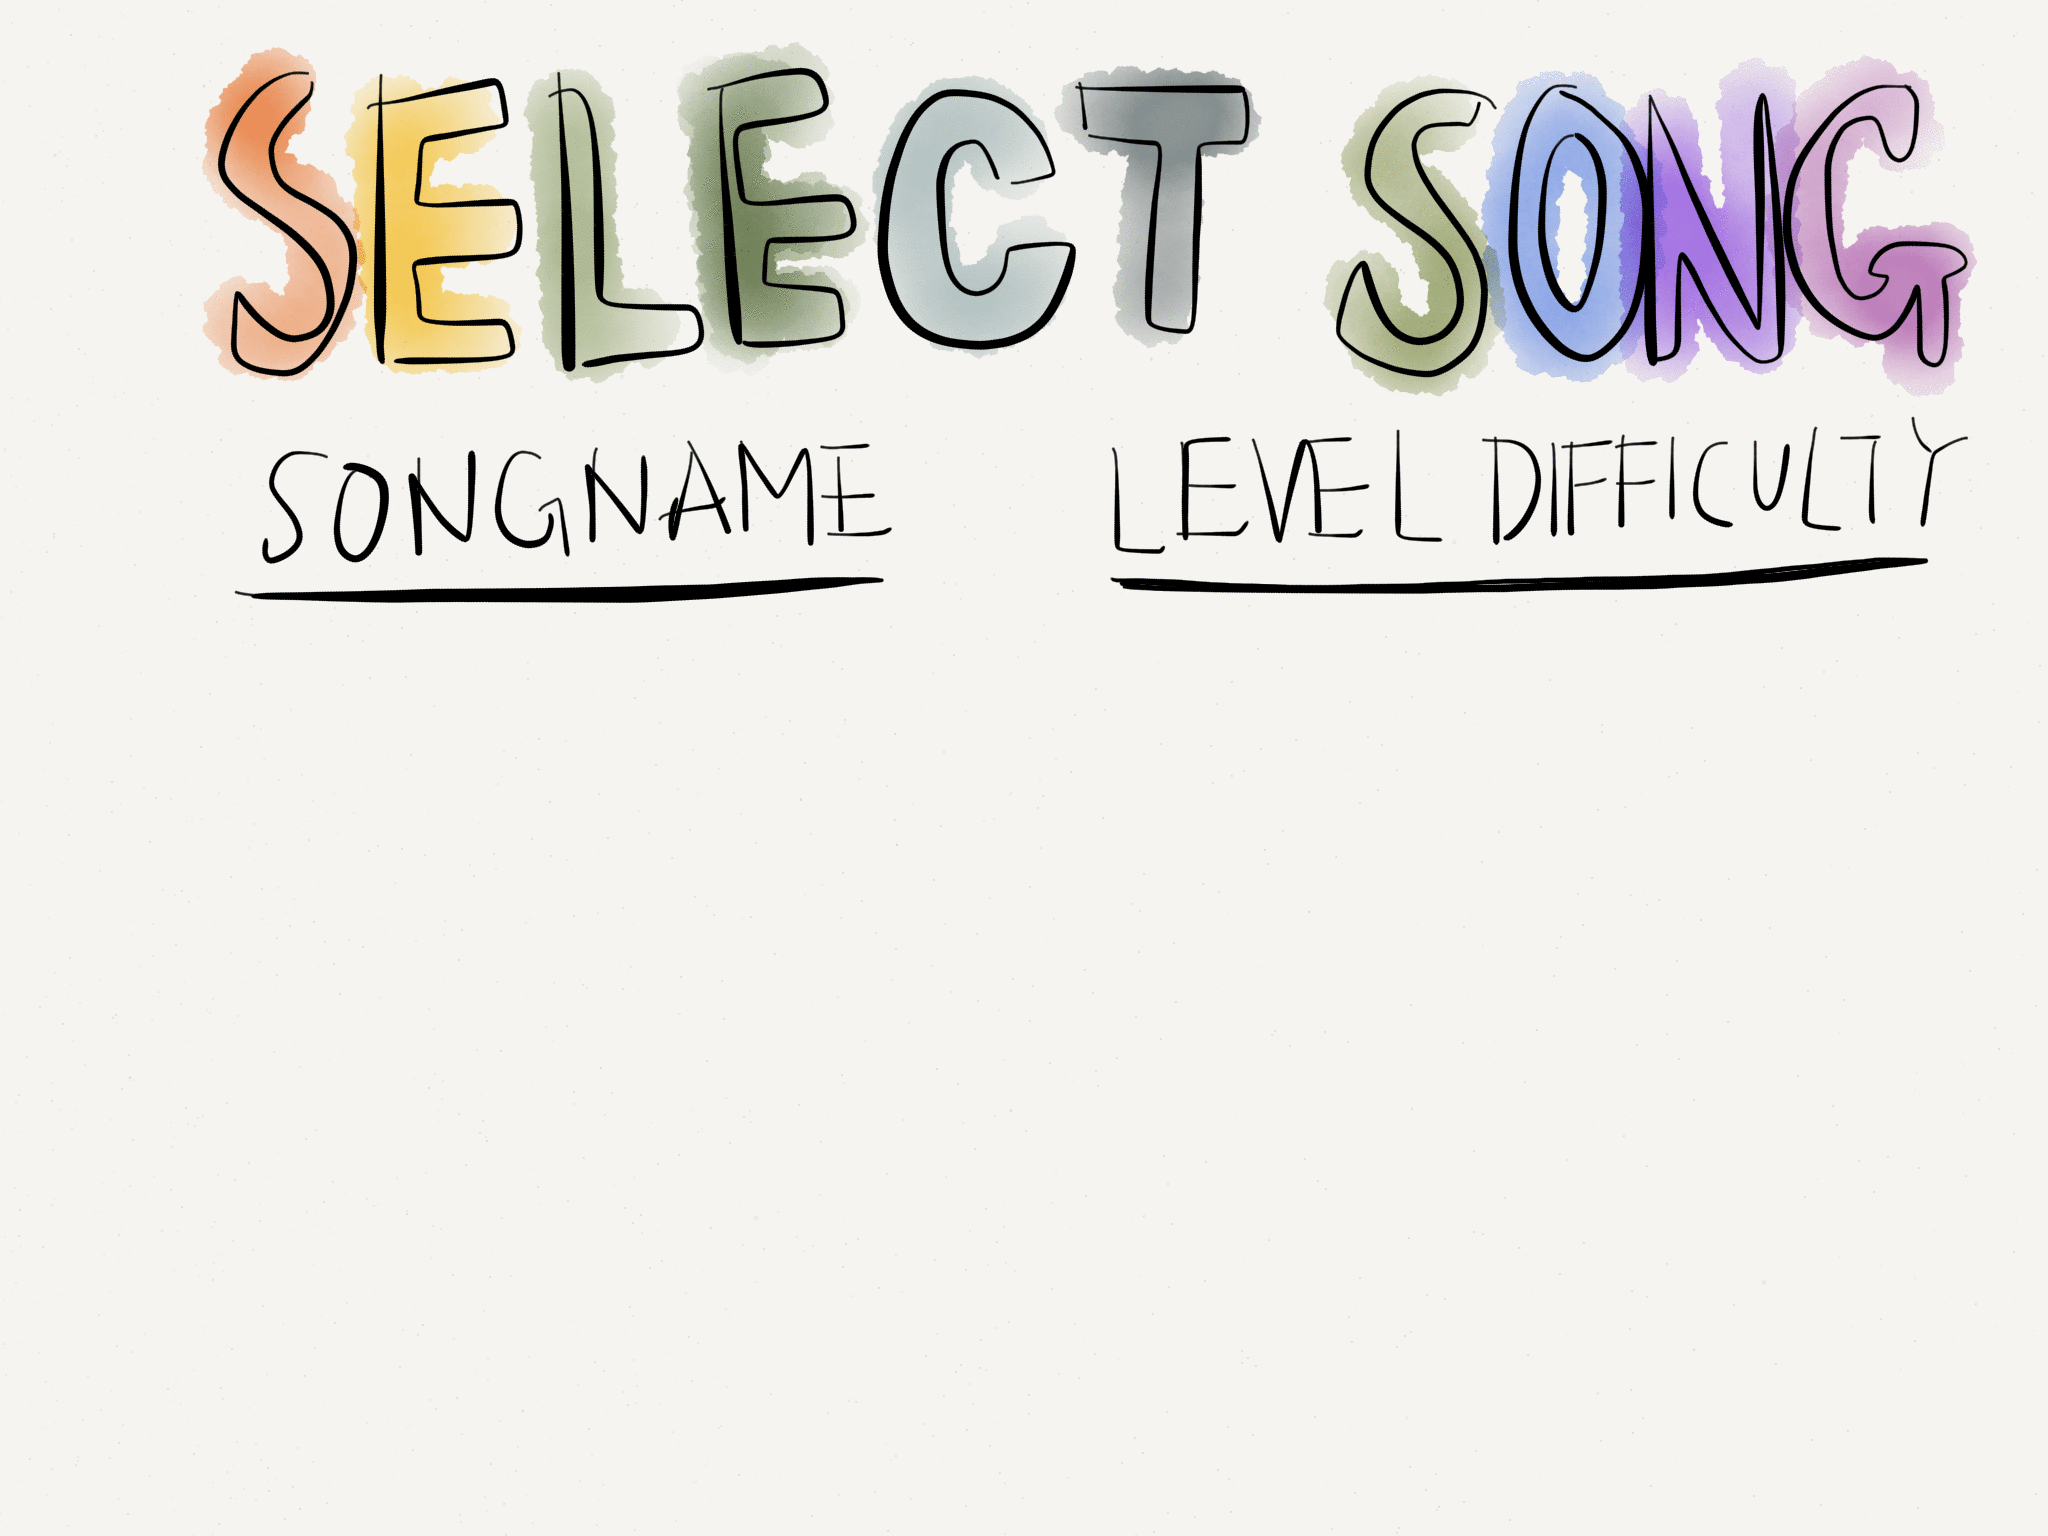 SELECT SONG
SONGNAME LEVEL DIFFICULTY